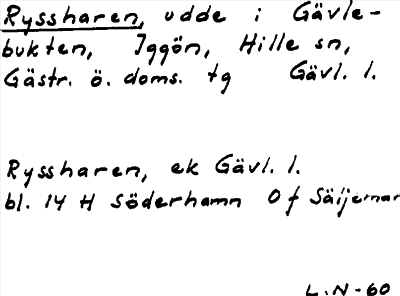 Ryssharen, udde i Gävle-
bukten, Iggön, Hille sn,
Gästr. ö. doms. tg Gävl. l.
Ryssharen, ek Gävl. l.
bl. 14 H Söderhamn 0 f Säljemar
L.N-60